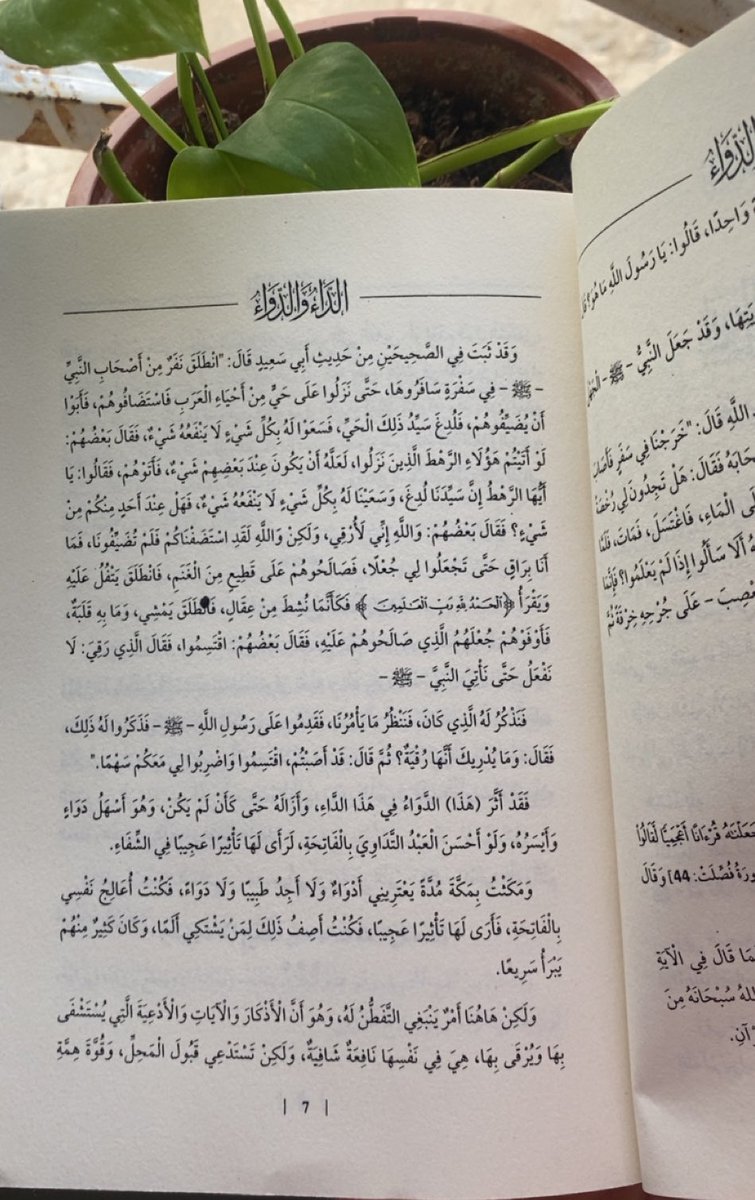 الدَّوَاءُ
وَاحِدًا، قَالُوا: يَا رَسُولَ اللَّهِ مَا هُوَ؟
وَقَدْ جَعَلَ النَّبِيُّ - ﷺ -
اللَّهِ قَالَ: "خَرَجْنَا فِي سَفَرٍ فَأَصَابَ
فَقَالَ: هَلْ تَجِدُونَ لِي رُخْصَةً
الْمَاءِ، فَاغْتَسَلَ، فَمَاتَ، فَلَمَّا
أَلَا سَأَلُوا إِذَا لَمْ يَعْلَمُوا؟ فَإِنَّمَا
- عَلَى جُرْحِهِ خِرْقَةً ثُمَّ
جَعَلْنَٰهُ قُرْءَانًا أَعْجَمِيًّا لَقَالُوا
فُصِّلَتْ: 44] وَقَالَ
قَالَ فِي الْآيَةِ
سُبْحَانَهُ مِنَ
الدَّاءُ وَالدَّوَاءُ
وَقَدْ ثَبَتَ فِي الصَّحِيحَيْنِ مِنْ حَدِيثِ أَبِي سَعِيدٍ قَالَ: "انْطَلَقَ نَفَرٌ مِنْ أَصْحَابِ النَّبِيِّ
- ﷺ - فِي سَفْرَةٍ سَافَرُوهَا، حَتَّى نَزَلُوا عَلَى حَيٍّ مِنْ أَحْيَاءِ الْعَرَبِ فَاسْتَضَافُوهُمْ، فَأَبَوْا
أَنْ يُضَيِّفُوهُمْ، فَلُدِغَ سَيِّدُ ذَلِكَ الْحَيِّ، فَسَعَوْا لَهُ بِكُلِّ شَيْءٍ لَا يَنْفَعُهُ شَيْءٌ، فَقَالَ بَعْضُهُمْ:
لَوْ أَتَيْتُمْ هَؤُلَاءِ الرَّهْطَ الَّذِينَ نَزَلُوا، لَعَلَّهُ أَنْ يَكُونَ عِنْدَ بَعْضِهِمْ شَيْءٌ، فَأَتَوْهُمْ، فَقَالُوا: يَا
أَيُّهَا الرَّهْطُ إِنَّ سَيِّدَنَا لُدِغَ، وَسَعَيْنَا لَهُ بِكُلِّ شَيْءٍ لَا يَنْفَعُهُ شَيْءٌ، فَهَلْ عِنْدَ أَحَدٍ مِنْكُمْ مِنْ
شَيْءٍ؟ فَقَالَ بَعْضُهُمْ: وَاللَّهِ إِنِّي لَأَرْقِي، وَلَكِنْ وَاللَّهِ لَقَدِ اسْتَضَفْنَاكُمْ فَلَمْ تُضَيِّفُونَا، فَمَا
أَنَا بِرَاقٍ حَتَّى تَجْعَلُوا لِي جُعْلًا، فَصَالَحُوهُمْ عَلَى قَطِيعٍ مِنَ الْغَنَمِ، فَانْطَلَقَ يَتْفُلُ عَلَيْهِ
وَيَقْرَأُ ﴿الْحَمْدُ لِلَّهِ رَبِّ الْعَٰلَمِينَ﴾ فَكَأَنَّمَا نُشِطَ مِنْ عِقَالٍ، فَانْطَلَقَ يَمْشِي، وَمَا بِهِ قَلَبَةٌ،
فَأَوْفَوْهُمْ جُعْلَهُمُ الَّذِي صَالَحُوهُمْ عَلَيْهِ، فَقَالَ بَعْضُهُمْ: اقْتَسِمُوا، فَقَالَ الَّذِي رَقِيَ: لَا
نَفْعَلُ حَتَّى نَأْتِيَ النَّبِيَّ - ﷺ -
فَنَذْكُرُ لَهُ الَّذِي كَانَ، فَنَنْظُرُ مَا يَأْمُرُنَا، فَقَدِمُوا عَلَى رَسُولِ اللَّهِ - ﷺ - فَذَكَرُوا لَهُ ذَلِكَ،
فَقَالَ: وَمَا يُدْرِيكَ أَنَّهَا رُقْيَةٌ؟ ثُمَّ قَالَ: قَدْ أَصَبْتُمْ، اقْتَسِمُوا وَاضْرِبُوا لِي مَعَكُمْ سَهْمًا."
فَقَدْ أَثَّرَ (هَذَا) الدَّوَاءُ فِي هَذَا الدَّاءِ، وَأَزَالَهُ حَتَّى كَأَنْ لَمْ يَكُنْ، وَهُوَ أَسْهَلُ دَوَاءٍ
وَأَيْسَرُهُ، وَلَوْ أَحْسَنَ الْعَبْدُ التَّدَاوِيَ بِالْفَاتِحَةِ، لَرَأَى لَهَا تَأْثِيرًا عَجِيبًا فِي الشِّفَاءِ.
وَمَكَثْتُ بِمَكَّةَ مُدَّةً يَعْتَرِينِي أَدْوَاءٌ وَلَا أَجِدُ طَبِيبًا وَلَا دَوَاءً، فَكُنْتُ أُعَالِجُ نَفْسِي
بِالْفَاتِحَةِ، فَأَرَى لَهَا تَأْثِيرًا عَجِيبًا، فَكُنْتُ أَصِفُ ذَلِكَ لِمَنْ يَشْتَكِي أَلَمًا، وَكَانَ كَثِيرٌ مِنْهُمْ
يَبْرَأُ سَرِيعًا.
وَلَكِنْ هَاهُنَا أَمْرٌ يَنْبَغِي التَّفَطُّنُ لَهُ، وَهُوَ أَنَّ الْأَذْكَارَ وَالْآيَاتِ وَالْأَدْعِيَةَ الَّتِي يُسْتَشْفَى
بِهَا وَيُرْقَى بِهَا، هِيَ فِي نَفْسِهَا نَافِعَةٌ شَافِيَةٌ، وَلَكِنْ تَسْتَدْعِي قَبُولَ الْمَحِلِّ، وَقُوَّةَ هِمَّةِ
| 7 |